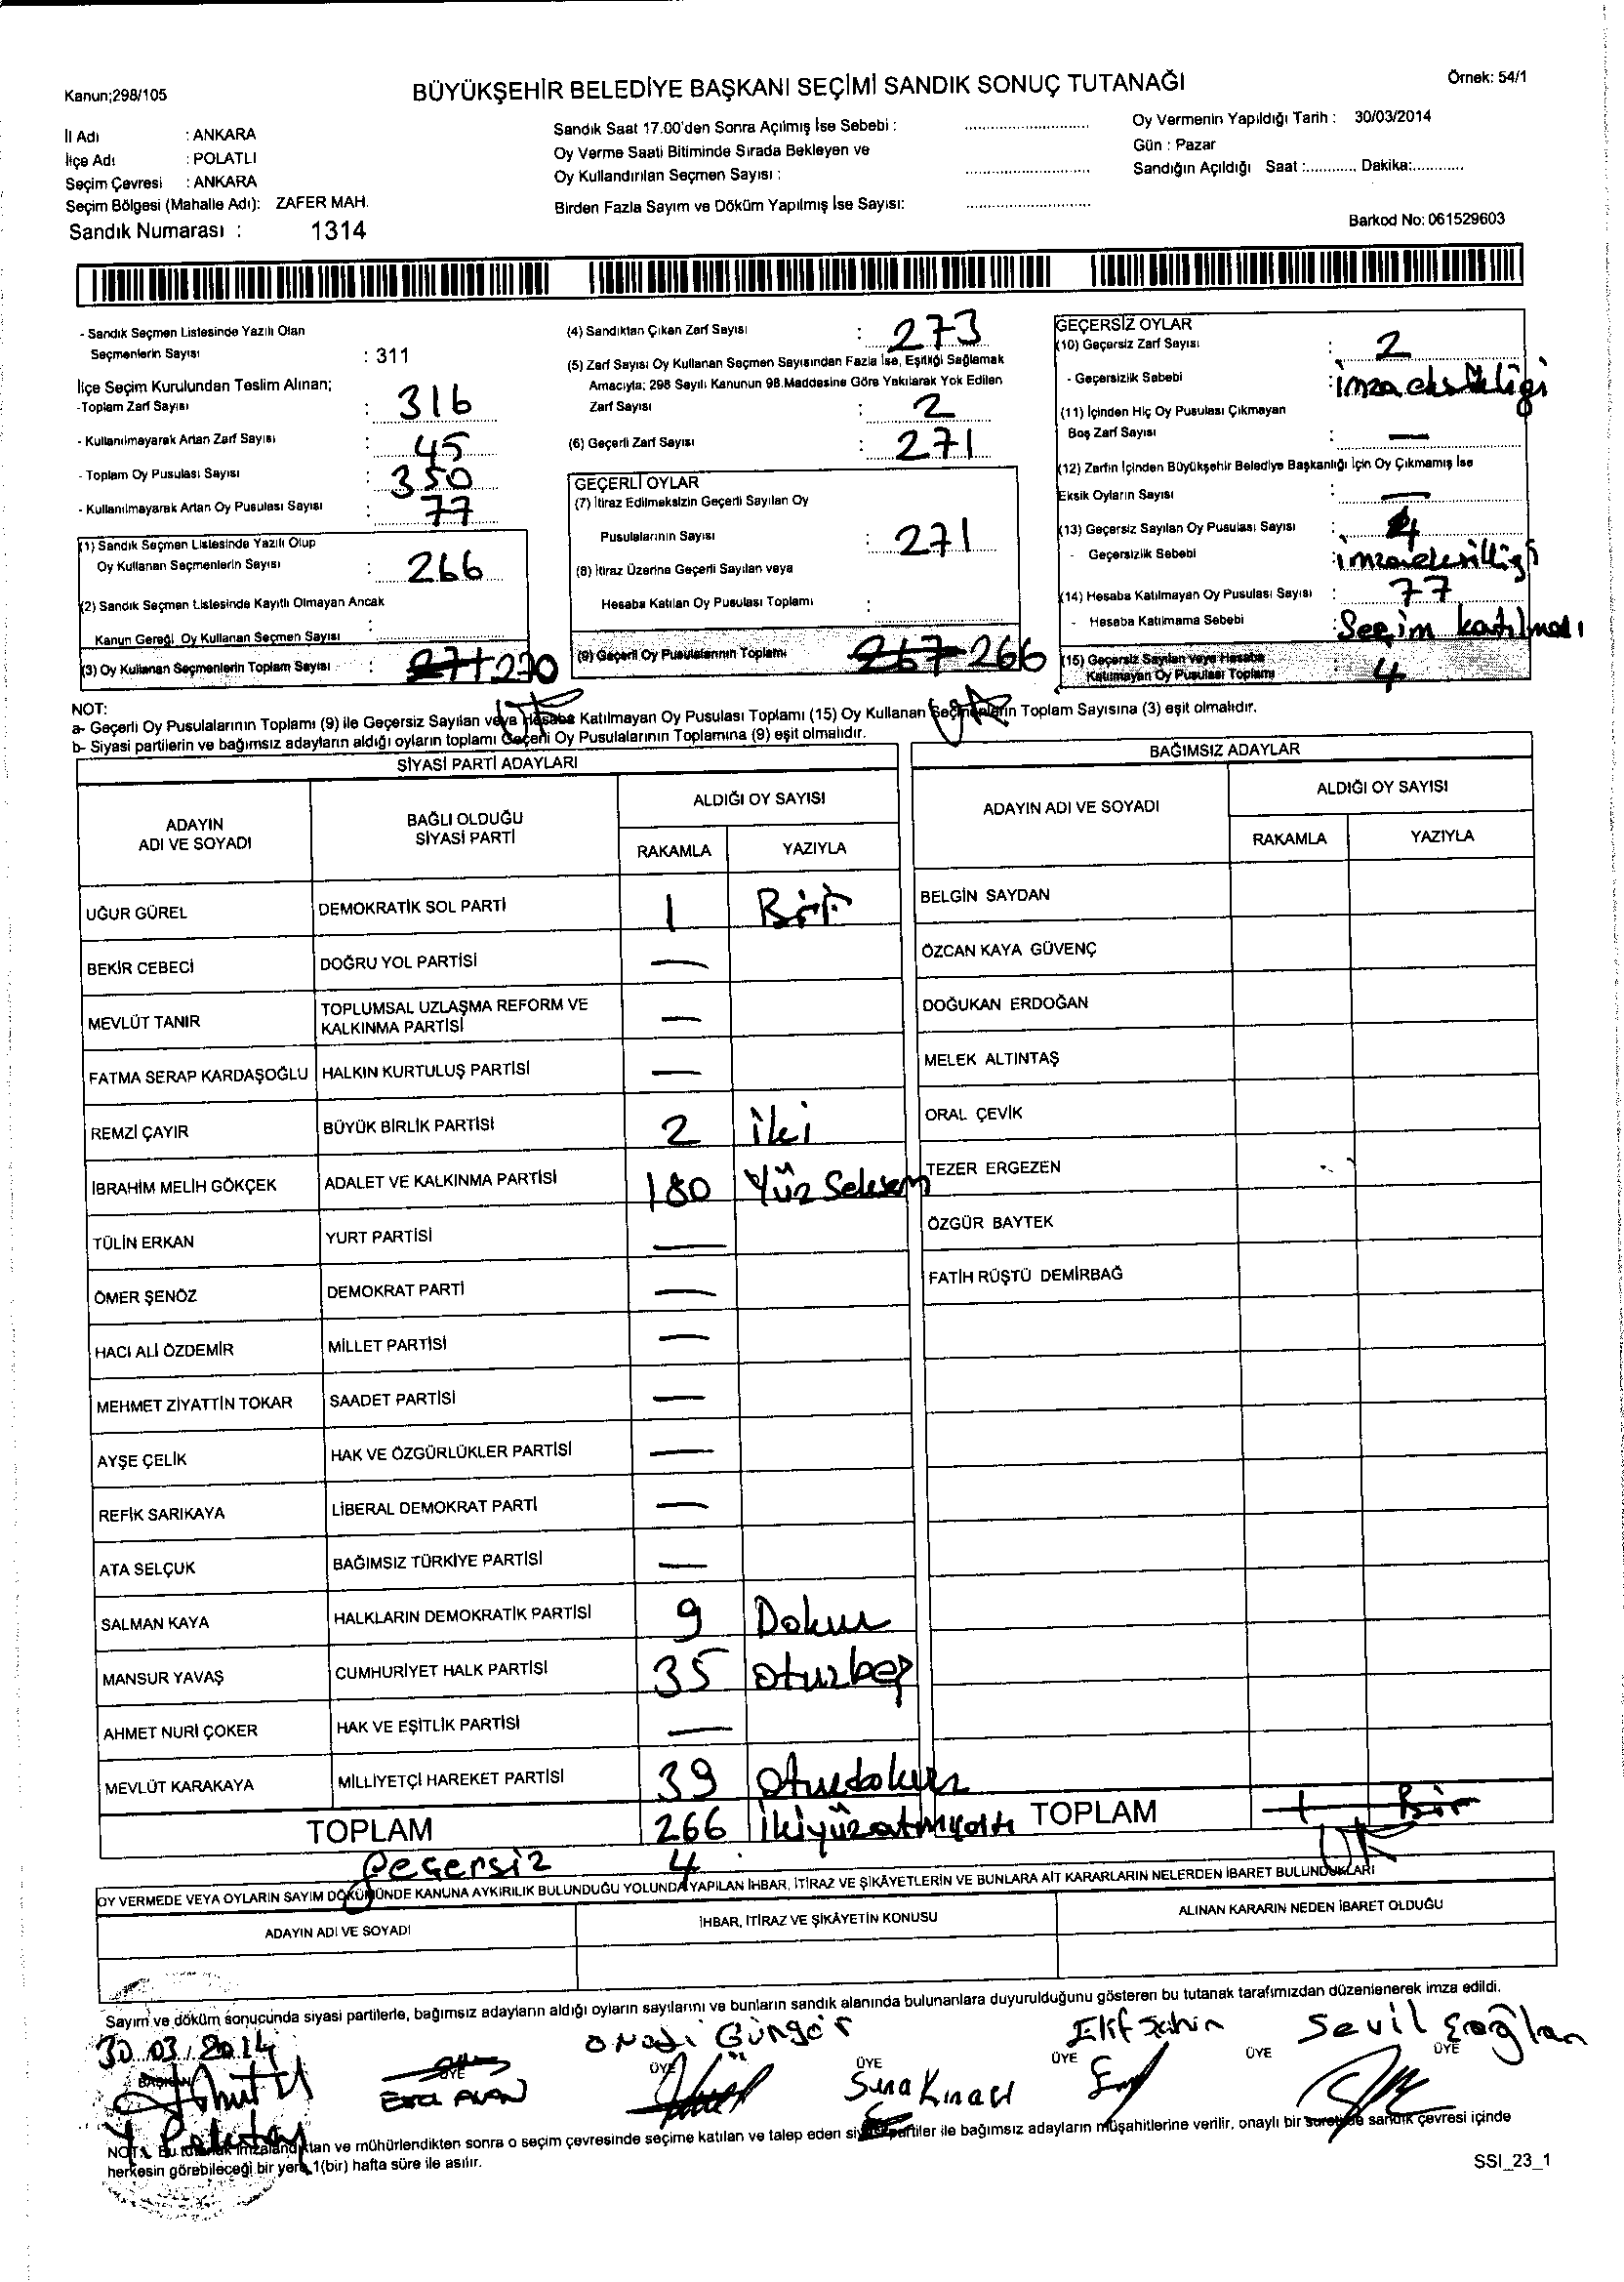 Kanun;298/105
BÜYÜKŞEHİR BELEDİYE BAŞKANI SEÇİMİ SANDIK SONUÇ TUTANAĞI
Örnek: 54/1
İl Adı : ANKARA
İlçe Adı : POLATLI
Seçim Çevresi : ANKARA
Seçim Bölgesi (Mahalle Adı): ZAFER MAH.
Sandık Numarası : 1314
Sandık Saat 17.00'den Sonra Açılmış İse Sebebi :
Oy Verme Saati Bitiminde Sırada Bekleyen ve
Oy Kullandırılan Seçmen Sayısı :
Birden Fazla Sayım ve Döküm Yapılmış İse Sayısı:
Oy Vermenin Yapıldığı Tarih : 30/03/2014
Gün : Pazar
Sandığın Açıldığı Saat :............ Dakika:............
Barkod No: 061529603
- Sandık Seçmen Listesinde Yazılı Olan
Seçmenlerin Sayısı : 311
İlçe Seçim Kurulundan Teslim Alınan;
-Toplam Zarf Sayısı : 316
- Kullanılmayarak Artan Zarf Sayısı : 45
- Toplam Oy Pusulası Sayısı : 350
- Kullanılmayarak Artan Oy Pusulası Sayısı : 77
(1) Sandık Seçmen Listesinde Yazılı Olup
Oy Kullanan Seçmenlerin Sayısı : 266
(2) Sandık Seçmen Listesinde Kayıtlı Olmayan Ancak
Kanun Gereği Oy Kullanan Seçmen Sayısı :
(3) Oy Kullanan Seçmenlerin Toplam Sayısı : 271 270
(4) Sandıktan Çıkan Zarf Sayısı : 273
(5) Zarf Sayısı Oy Kullanan Seçmen Sayısından Fazla İse, Eşitliği Sağlamak
Amacıyla; 298 Sayılı Kanunun 98.Maddesine Göre Yakılarak Yok Edilen
Zarf Sayısı : 2
(6) Geçerli Zarf Sayısı : 271
GEÇERLİ OYLAR
(7) İtiraz Edilmeksizin Geçerli Sayılan Oy
Pusulalarının Sayısı : 271
(8) İtiraz Üzerine Geçerli Sayılan veya
Hesaba Katılan Oy Pusulası Toplamı :
(9) Geçerli Oy Pusulalarının Toplamı 267 266
GEÇERSİZ OYLAR
(10) Geçersiz Zarf Sayısı : 2
- Geçersizlik Sebebi : imza eksikliği
(11) İçinden Hiç Oy Pusulası Çıkmayan
Boş Zarf Sayısı : —
(12) Zarfın İçinden Büyükşehir Belediye Başkanlığı İçin Oy Çıkmamış İse
Eksik Oyların Sayısı : —
(13) Geçersiz Sayılan Oy Pusulası Sayısı : 4
- Geçersizlik Sebebi
(14) Hesaba Katılmayan Oy Pusulası Sayısı : 77
- Hesaba Katılmama Sebebi : Seçim katılmadı
(15) Geçersiz Sayılan veya Hesaba
Katılmayan Oy Pusulası Toplamı : 4
NOT:
a- Geçerli Oy Pusulalarının Toplamı (9) ile Geçersiz Sayılan veya Hesaba Katılmayan Oy Pusulası Toplamı (15) Oy Kullanan Seçmenlerin Toplam Sayısına (3) eşit olmalıdır.
b- Siyasi partilerin ve bağımsız adayların aldığı oyların toplamı Geçerli Oy Pusulalarının Toplamına (9) eşit olmalıdır.
SİYASİ PARTİ ADAYLARI
ADAYIN ADI VE SOYADI
BAĞLI OLDUĞU SİYASİ PARTİ
ALDIĞI OY SAYISI
RAKAMLA YAZIYLA
UĞUR GÜREL DEMOKRATİK SOL PARTİ 1 Bir
BEKİR CEBECİ DOĞRU YOL PARTİSİ —
MEVLÜT TANIR TOPLUMSAL UZLAŞMA REFORM VE KALKINMA PARTİSİ —
FATMA SERAP KARDAŞOĞLU HALKIN KURTULUŞ PARTİSİ —
REMZİ ÇAYIR BÜYÜK BİRLİK PARTİSİ 2 iki
İBRAHİM MELİH GÖKÇEK ADALET VE KALKINMA PARTİSİ 180 Yüz Seksen
TÜLİN ERKAN YURT PARTİSİ —
ÖMER ŞENÖZ DEMOKRAT PARTİ —
HACI ALİ ÖZDEMİR MİLLET PARTİSİ —
MEHMET ZİYATTİN TOKAR SAADET PARTİSİ —
AYŞE ÇELİK HAK VE ÖZGÜRLÜKLER PARTİSİ —
REFİK SARIKAYA LİBERAL DEMOKRAT PARTİ —
ATA SELÇUK BAĞIMSIZ TÜRKİYE PARTİSİ —
SALMAN KAYA HALKLARIN DEMOKRATİK PARTİSİ 9 Dokuz
MANSUR YAVAŞ CUMHURİYET HALK PARTİSİ 35 Oturbeş
AHMET NURİ ÇOKER HAK VE EŞİTLİK PARTİSİ —
MEVLÜT KARAKAYA MİLLİYETÇİ HAREKET PARTİSİ 39 Oturdokuz
TOPLAM 266 İkiyüzatmışaltı
Geçersiz 4
BAĞIMSIZ ADAYLAR
ADAYIN ADI VE SOYADI
ALDIĞI OY SAYISI
RAKAMLA YAZIYLA
BELGİN SAYDAN
ÖZCAN KAYA GÜVENÇ
DOĞUKAN ERDOĞAN
MELEK ALTINTAŞ
ORAL ÇEVİK
TEZER ERGEZEN
ÖZGÜR BAYTEK
FATİH RÜŞTÜ DEMİRBAĞ
TOPLAM 1 Bir
OY VERMEDE VEYA OYLARIN SAYIM DÖKÜMÜNDE KANUNA AYKIRILIK BULUNDUĞU YOLUNDA YAPILAN İHBAR, İTİRAZ VE ŞİKÂYETLERİN VE BUNLARA AİT KARARLARIN NELERDEN İBARET BULUNDUKLARI
ADAYIN ADI VE SOYADI
İHBAR, İTİRAZ VE ŞİKÂYETİN KONUSU
ALINAN KARARIN NEDEN İBARET OLDUĞU
Sayım ve döküm sonucunda siyasi partilerle, bağımsız adayların aldığı oyların sayılarını ve bunların sandık alanında bulunanlara duyurulduğunu gösteren bu tutanak tarafımızdan düzenlenerek imza edildi.
30.03.2014
Güngör Elif Şahin Sevil Eroğlan
BAŞKAN ÜYE ÜYE ÜYE ÜYE ÜYE ÜYE
Sına Kınacı
NOT: Bu tutanak imzalandıktan ve mühürlendikten sonra o seçim çevresinde seçime katılan ve talep eden siyasi partiler ile bağımsız adayların müşahitlerine verilir, onaylı bir sureti de sandık çevresi içinde
herkesin görebileceği bir yere 1(bir) hafta süre ile asılır.
SSI_23_1